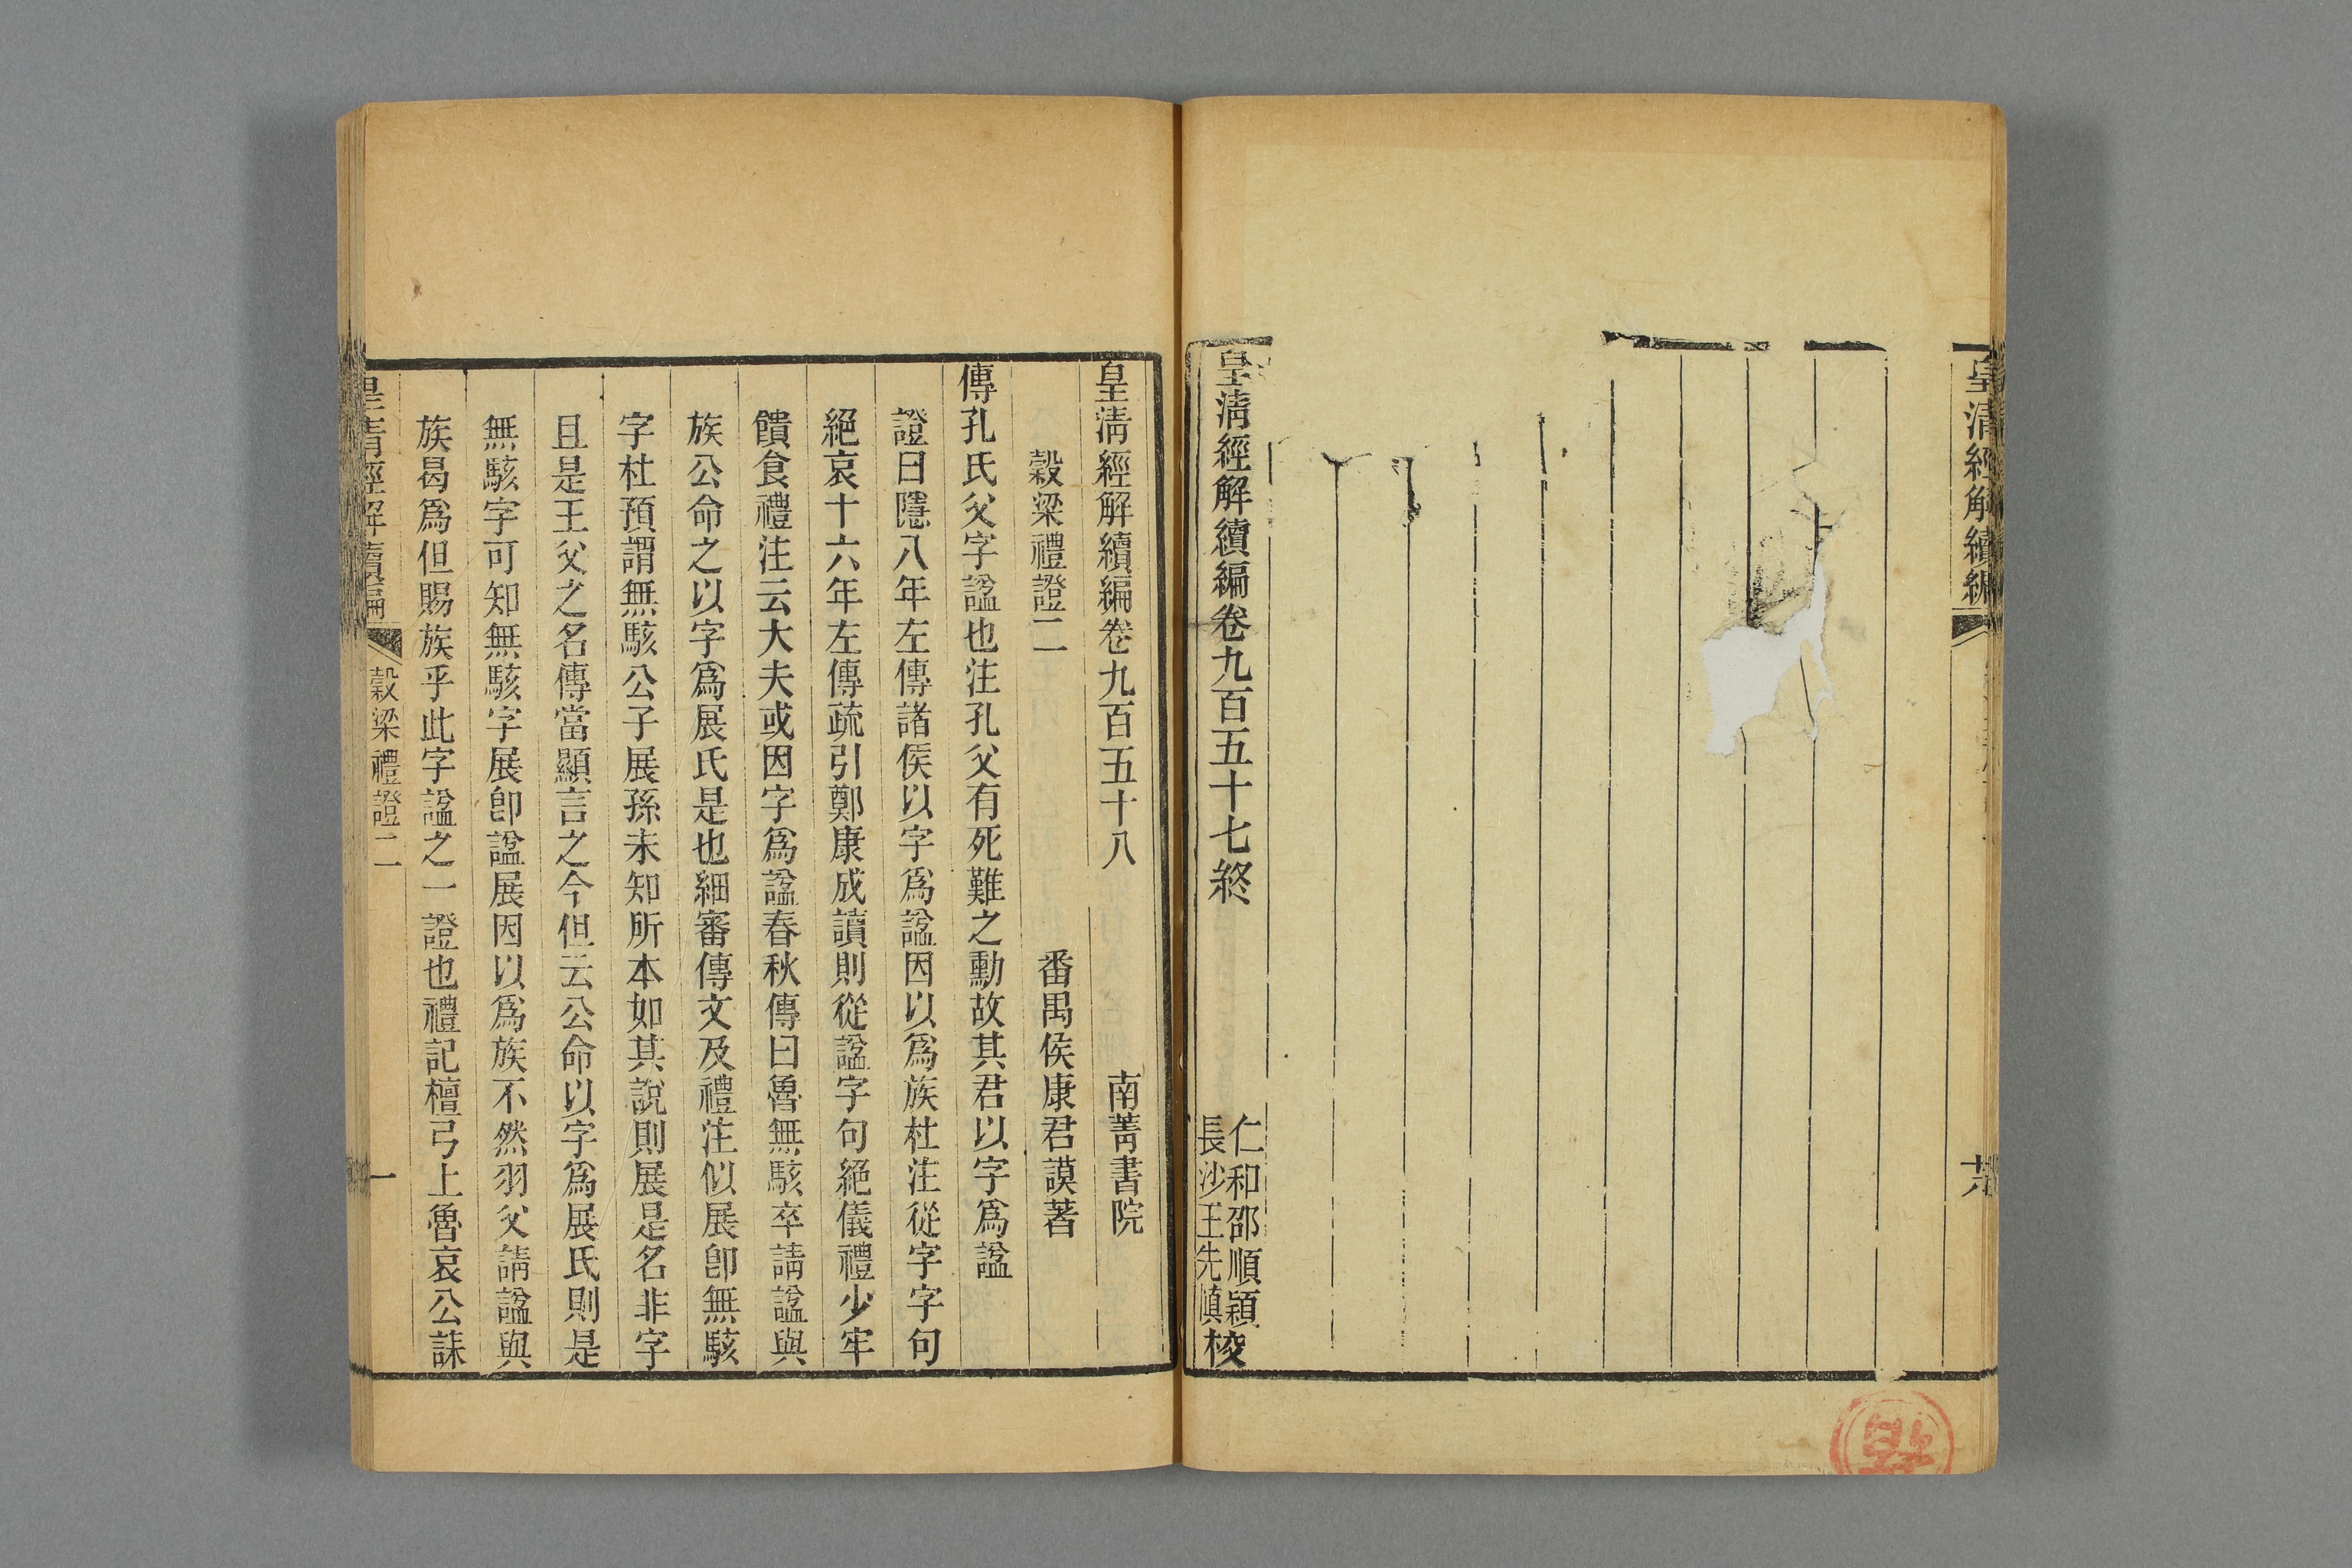 皇清經解續編
皇清經解續編卷九百五十七終
仁和邵順潁
長沙王先慎校
皇清經解續編卷九百五十八
南菁書院
穀梁禮證二
番禺侯康君謨著
傳孔氏父字諡也注孔父有死難之勳故其君以字爲諡
證曰隱八年左傳諸侯以字爲諡因以爲族杜注從字字句
絕哀十六年左傳疏引鄭康成讀則從諡字句絕儀禮少牢
饋食禮注云大夫或因字爲諡春秋傳曰魯無駭卒請諡與
族公命之以字爲展氏是也細審傳文及禮注似展卽無駭
字杜預謂無駭公子展孫未知所本如其說則展是名非字
且是王父之名傳當顯言之今但云公命以字爲展氏則是
無駭字可知無駭字展卽諡展因以爲族不然羽父請諡與
族曷爲但賜族乎此字諡之一證也禮記檀弓上魯哀公誄
皇清經解續編
穀梁禮證二
一